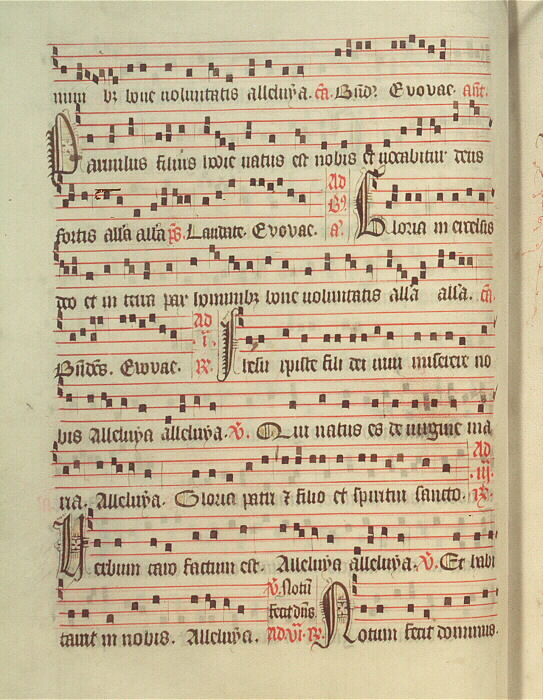 num bz bone voluntatis alleluya. ca. Bndz Evovae. ant.
Parvulus filius hodie natus est nobis et vocabitur deus
fortis alla alla ps Laudate. Evovae. Ad Bs. a. Gloria in excelsis
deo et in terra pax hominibz bone voluntatis alla alla. ca
Bndcs. Evovae. Ad i. R. Ihesu xpiste fili dei vivi miserere no
bis Alleluya alleluya. V. Qui natus es de virgine ma
ria. Alleluya. Gloria patri z filio et spiritui sancto. Ad iij. R.
Verbum caro factum est. Alleluya alleluya. V. Et habi
tavit in nobis. Alleluya. V. Notu fecit dns. Ad. vi. R. Notum fecit dominus